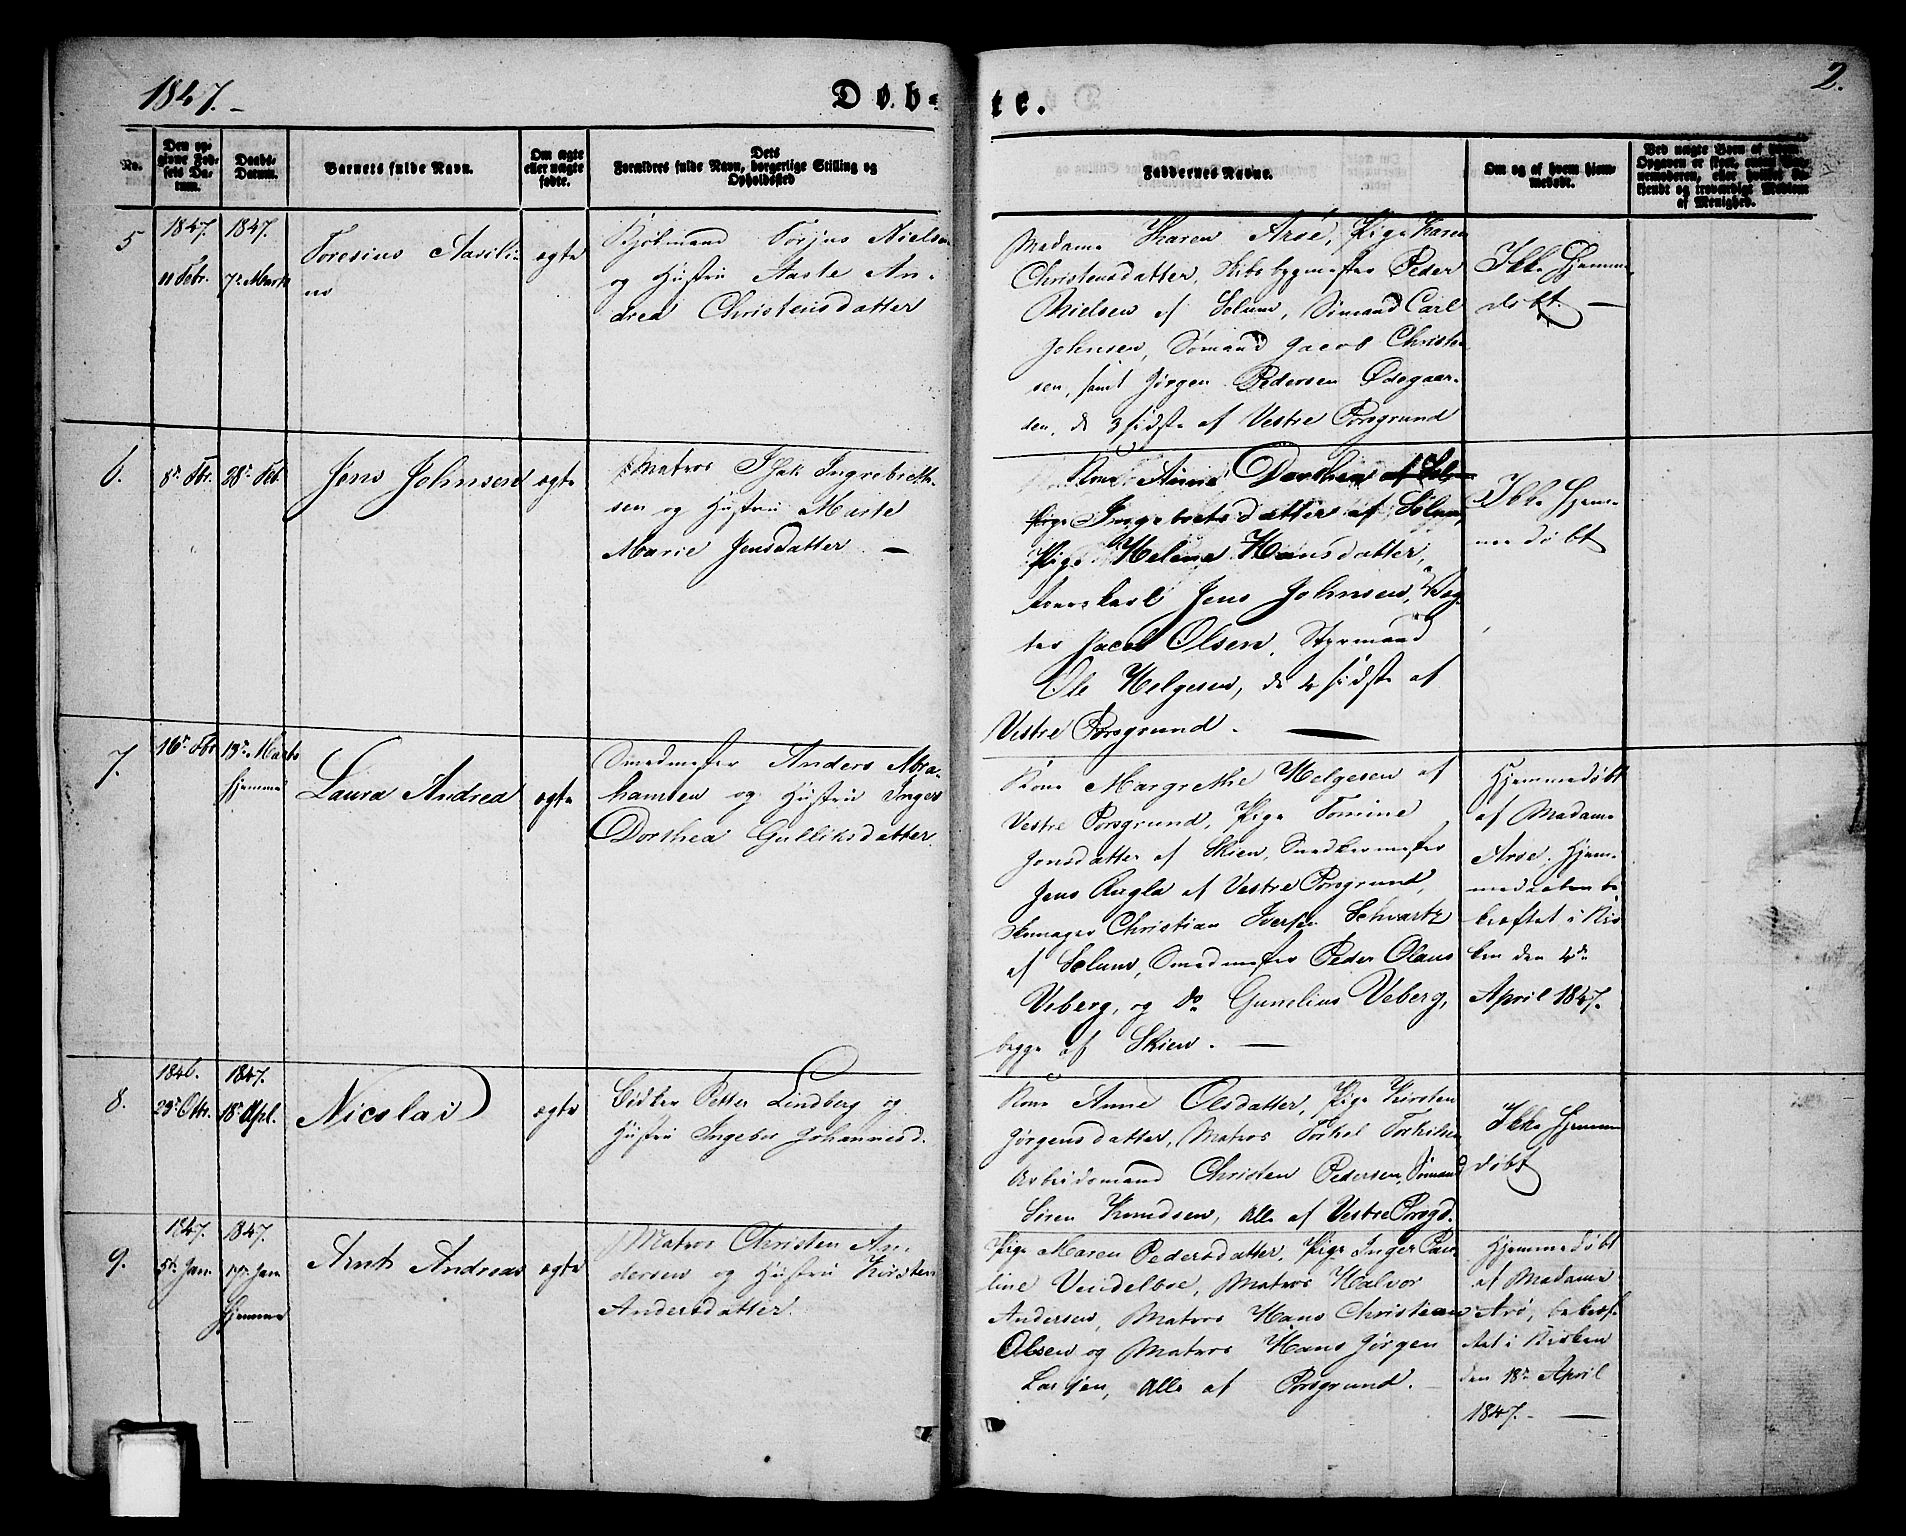 1847.
Døb-
te.
2.
No.
Den op-
givne Fød-
sels Da-
tum.
Daabs-
Datum.
Barnets fulde Navn.
Om ægte
eller uægte
fødte.
Dets
Forældres fulde Navn, borgerlige Stilling og
Opholdssted
Faddernes Navne.
Om og af hvem hjem-
medøbt.
Ved uægte Børn af hvem
Opgaven er skeet, enten Jor-
demoderen, eller hvilket be-
kjendt og troværdigt Medlem
af Menighed.
5
1847.
11 Febr.
1847.
7de Marts
Toresius Aasili-
us
ægte
Torjus Nielsen
og Hustru Aaste An-
drea Christensdatter
Madame Karen Arøe, Pige Karen
Christensdatter, Skibsbygmester Peder
Nielsen af Solum, Sømand Carl
Johnsen, Sømand Jacob Christen-
sen, samt Jørgen Pedersen Ødegaar-
den, de 3 sidste af Vestre Porsgrund
Ikke Hjemme-
døbt. —
6.
8de Fbr.
28de Feb.
Jens Johnsen
ægte
Matros Isak Ingrebreth-
sen og Hustru Marte
Marie Jensdatter —
Kone Anne Dorthea af Sol-
Pige Ingeborg datter af Solum,
Pige Helene Hansdatter,
karl Jens Johnsen,
Jacob Olsen, Styrmand
Ole Helgesen, de 4 sidste af
Vestre Porsgrund. —
Ikke Hjem-
medøbt
7.
16de Fbr
13de Marts
hjemme
Laura Andrea
ægte
Smedmester Anders Abra-
hamsen og Hustru Inger
Dorthea Gulliksdatter.
Kone Margrethe Helgesen af
Vestre Porsgrund, Pige Tomine
Jensdatter af Skien, Snedkermester
Jens Augla af Vestre Porsgrund,
Skomager Christian Iversen Schvartz
af Solum, Smedmester Peder Olaus
Veberg, og do Gunelius Veberg,
begge af Skien. —
Hjemmedøbt
af Madame
Arøe, Hjem-
medaaben be-
kræftet i Kir-
ken den 4de
April 1847.
8.
1846.
23de Oktr.
1847.
18de Apl.
Nicolai
ægte
Bødker Petter Lindberg og
Hustru Ingebor Johannesd.
Kone Anne Olsdatter, Pige Kirsten
Jørgensdatter, Matros Torkel Torkilsen
Arbeidsmand Christen Pedersen, Sømand
Søren Knudsen, alle af Vestre Porsgd.
Ikke Hjemme
døbt
9.
1847.
5te Jan.
1847.
17de Jan
hjemme
Arnt Andreas
ægte
Matros Christen An-
dersen og Hustru Kirsten
Andersdatter.
Pige Maren Pedersdatter, Pige Inger Pau-
line Vendelboe, Matros Halvor
Andersen, Matros Hans Christian
Olsen og Matros Hans Jørgen
Larsen, alle af Porsgrund. —
Hjemmedøbt
af Madame
Arø, bekræf-
tet i Kirken
den 18de April
1847. —